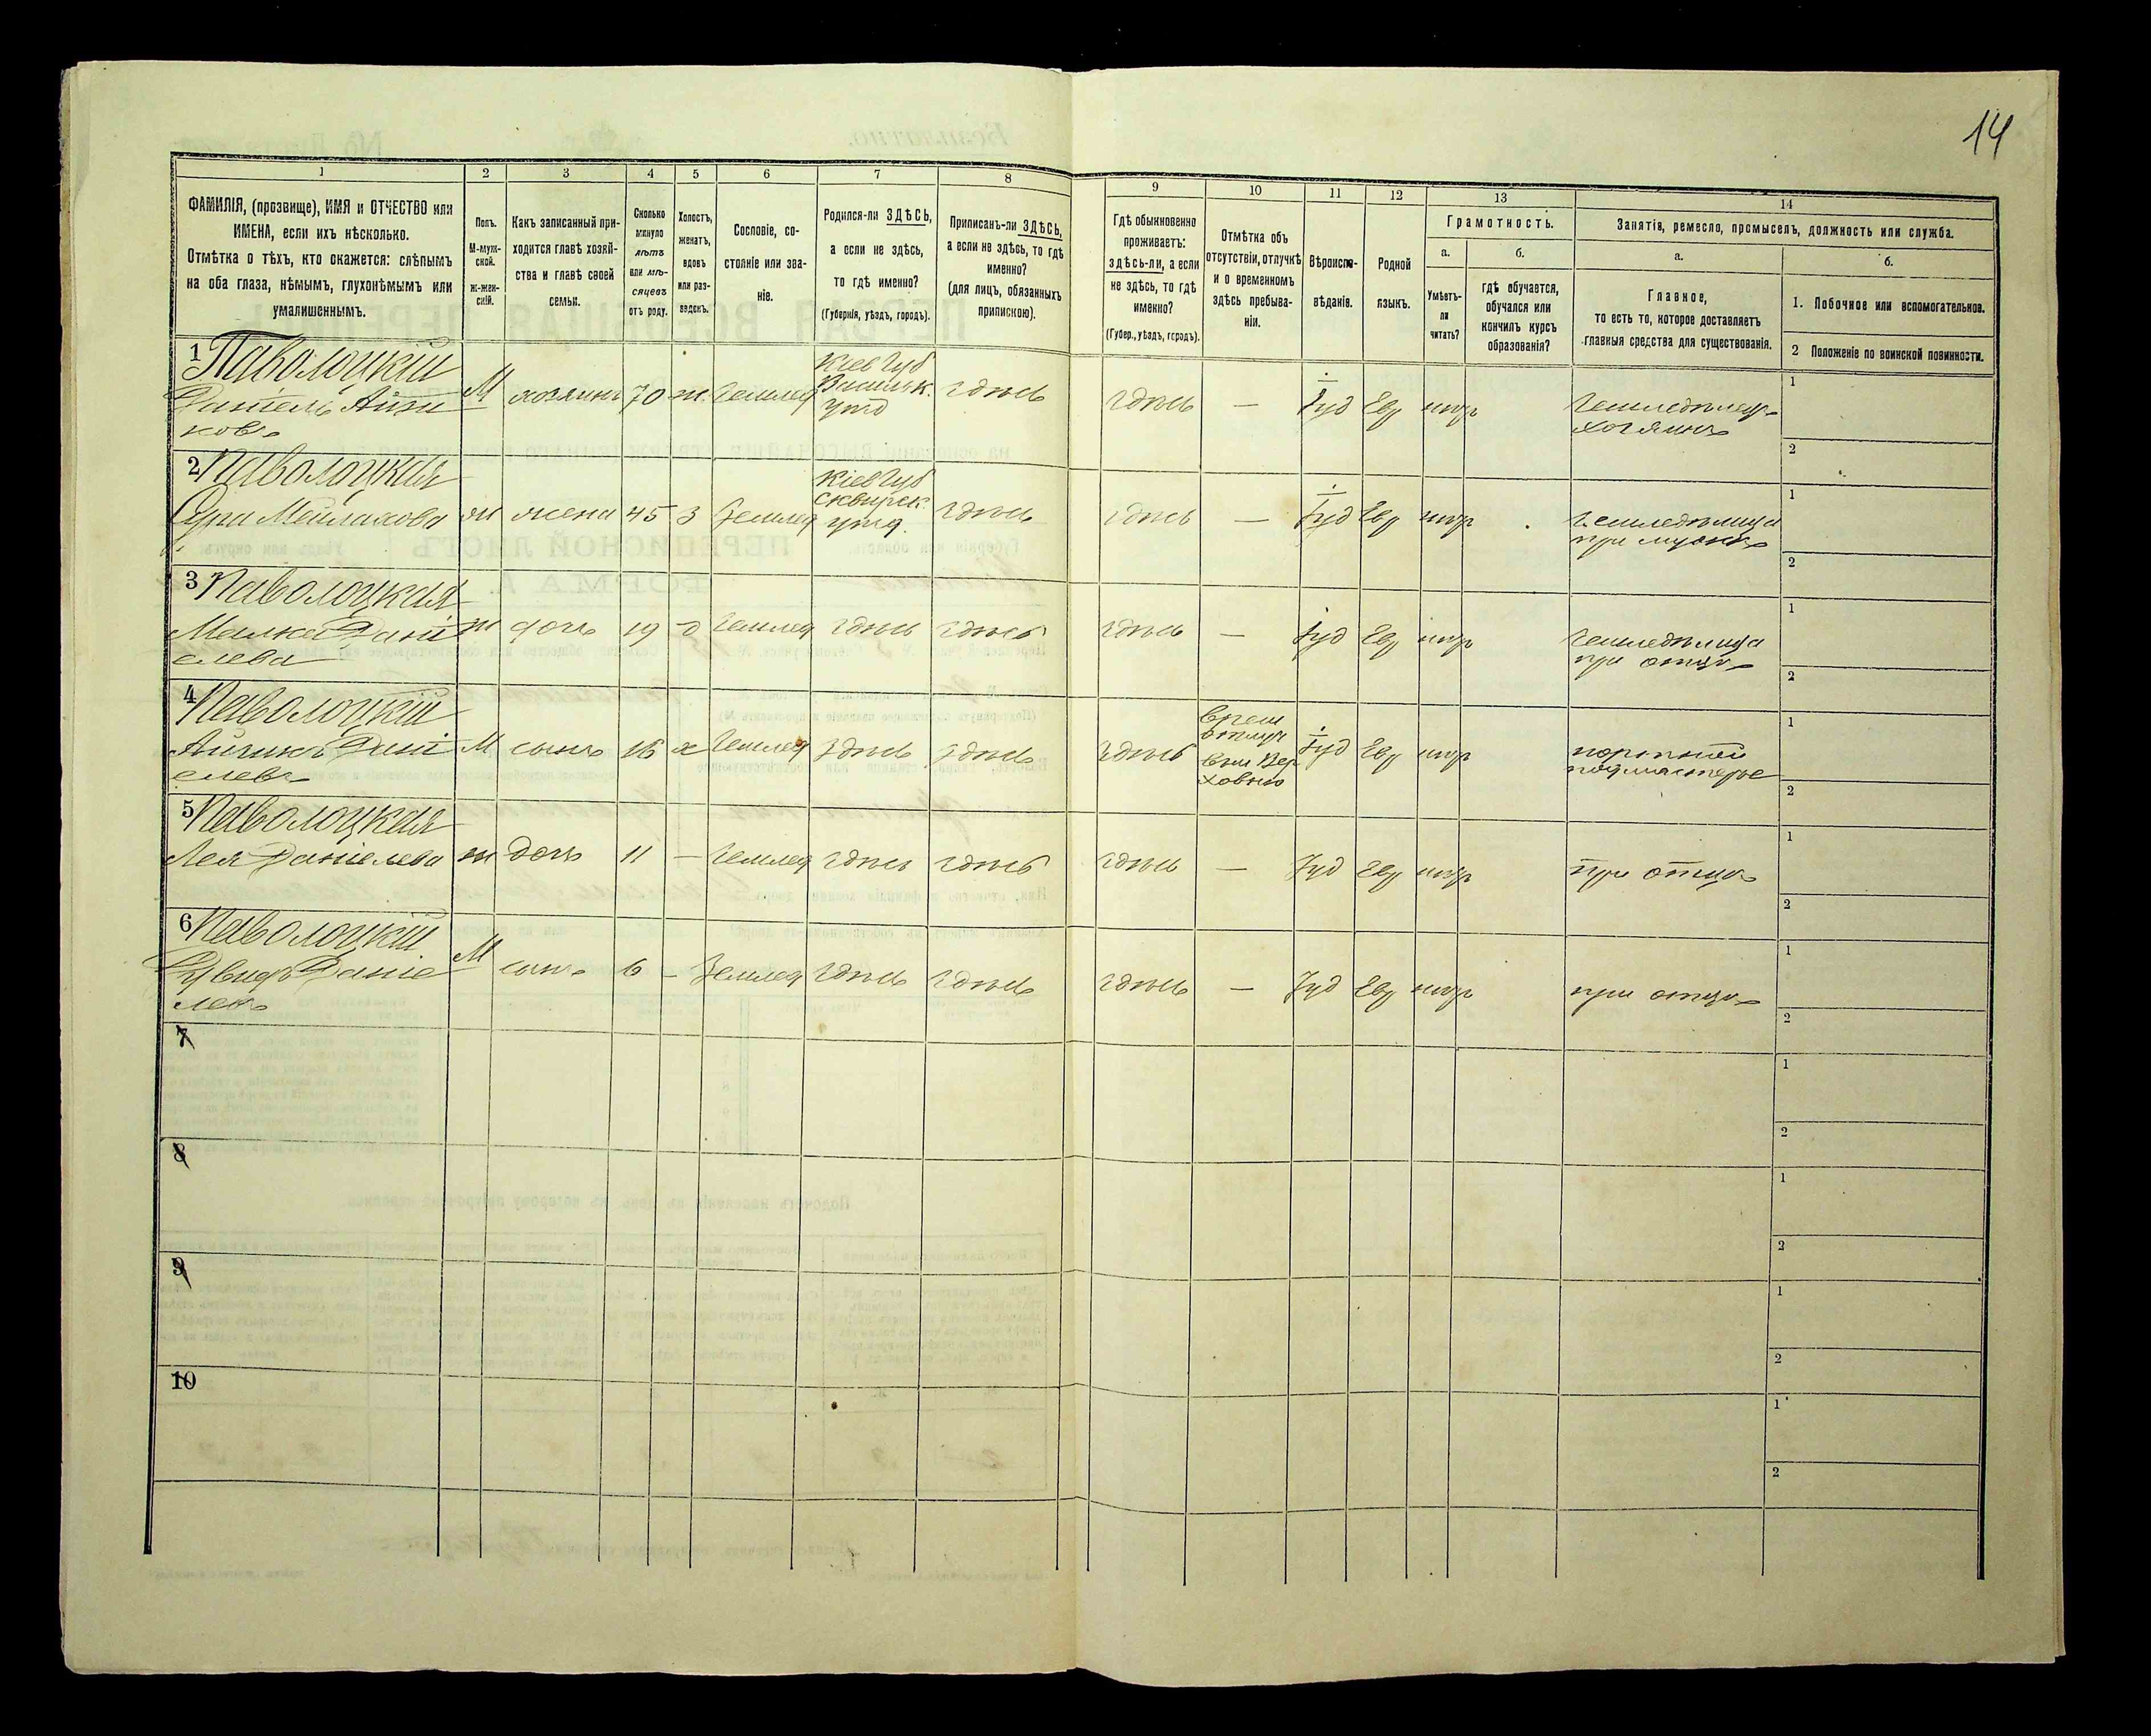 14
1 2 3 4 5 6 7 8 9 10 11 12 13 14
ФАМИЛІЯ, (прозвище), ИМЯ и ОТЧЕСТВО или
ИМЕНА, если ихъ нѣсколько.
Отмѣтка о тѣхъ, кто окажется: слѣпымъ
на оба глаза, нѣмымъ, глухонѣмымъ или
умалишеннымъ.
Полъ.
М-муж-
ской.
ж-жен-
скій.
Какъ записанный при-
ходится главѣ хозяй-
ства и главѣ своей
семьи.
Сколько
минуло
лѣтъ
или мѣ-
сяцевъ
отъ роду.
Холостъ,
женатъ,
вдовъ
или раз-
веденъ.
Сословіе, со-
стояніе или зва-
ніе.
Родился-ли ЗДѢСЬ,
а если не здѣсь,
то гдѣ именно?
(Губернія, уѣздъ, городъ).
Приписанъ-ли ЗДѢСЬ,
а если не здѣсь, то гдѣ
именно?
(для лицъ, обязанныхъ
припискою).
Гдѣ обыкновенно
проживаетъ:
здѣсь-ли, а если
не здѣсь, то гдѣ
именно?
(Губер., уѣздъ, городъ).
Отмѣтка объ
отсутствіи, отлучкѣ
и о временномъ
здѣсь пребыва-
ніи.
Вѣроиспо-
вѣданіе.
Родной
языкъ.
Грамотность.
а.
Умѣетъ-
ли
читать?
б.
гдѣ обучается,
обучался или
кончилъ курсъ
образованія?
Занятія, ремесло, промыселъ, должность или служба.
а.
Главное,
то есть то, которое доставляетъ
главныя средства для существованія.
б.
1. Побочное или вспомогательное.
2 Положеніе по воинской повинности.
1 Паволоцкій
Даніель Айзи
ковъ
М хозяинъ 70 ж. Землед
Кіев Губ
Васильк.
уѣзд
здѣсь здѣсь — Іуд Евр нѣтъ
Земледѣлецъ
хозяинъ
1
2
2 Паволоцкая
Сура Мейлахова ж жена 45 з Землед
Кіев Губ
Сквирск.
уѣзд.
здѣсь здѣсь — Іуд Евр
Земледѣлица
при мужѣ
1
2
3 Паволоцкая
Малка Дані
елева
ж дочь 19 д Землед здѣсь здѣсь здѣсь — Іуд Евр
Земледѣлица
при отцѣ
1
2
4 Паволоцкій
Айзикъ Дані
елевъ
М сынъ 16 х Землед здѣсь здѣсь здѣсь
Врем
отлуч
Вер
ховню
Іуд Евр
портной
подмастерье
1
2
5 Паволоцкая
Лея Даніелева ж дочь 11 — Землед здѣсь здѣсь здѣсь — Іуд Евр
при отцѣ
1
2
6 Паволоцкій
Даніе
левъ
М сынъ 6 — Землед здѣсь здѣсь здѣсь — Іуд Евр
при отцѣ
1
2
7
1
2
8
1
2
9
1
2
10
1
2